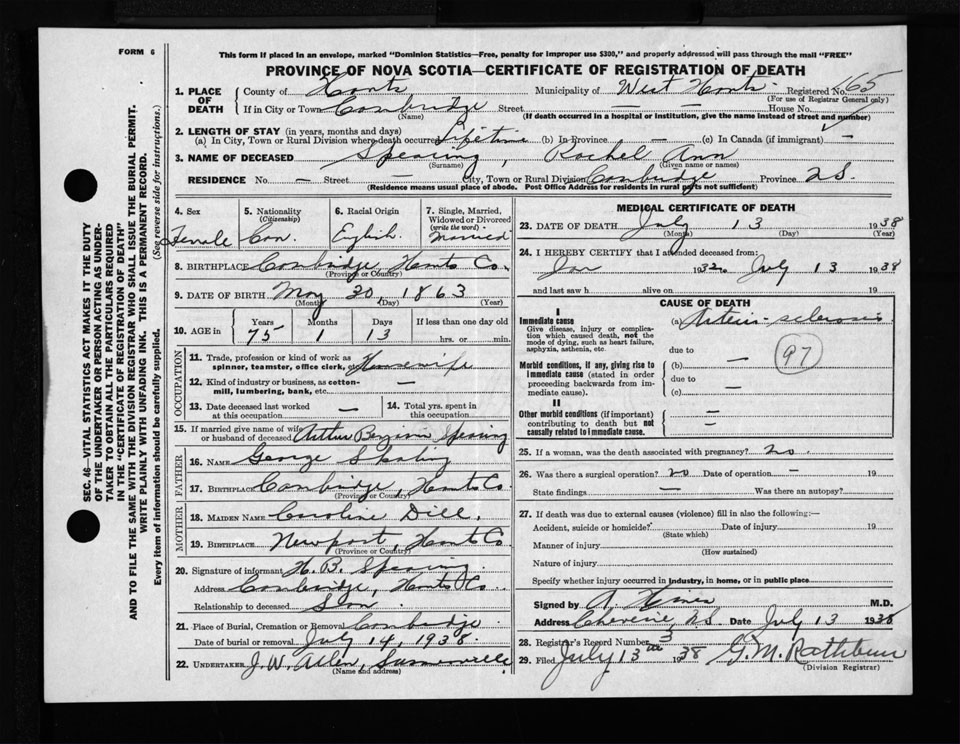 FORM 6
This form if placed in an envelope, marked "Dominion Statistics—Free, penalty for improper use $300," and properly addressed will pass through the mail "FREE"
PROVINCE OF NOVA SCOTIA—CERTIFICATE OF REGISTRATION OF DEATH
1. PLACE OF DEATH
County of Hants Municipality of West Hants Registered No. 165
(For use of Registrar General only)
If in City or Town Cambridge Street — — House No. —
(Name) (If death occurred in a hospital or institution, give the name instead of street and number)
2. LENGTH OF STAY (in years, months and days)
(a) In City, Town or Rural Division where death occurred Lifetime (b) In Province — (c) In Canada (if immigrant) —
3. NAME OF DECEASED Spearing, Rachel Ann
(Surname) (Given name or names)
RESIDENCE No. — Street — City, Town or Rural Division Cambridge Province N.S.
(Residence means usual place of abode. Post Office Address for residents in rural parts not sufficient)
SEC. 46—VITAL STATISTICS ACT MAKES IT THE DUTY
OF THE UNDERTAKER OR PERSON ACTING AS UNDER-
TAKER TO OBTAIN ALL THE PARTICULARS REQUIRED
IN THE "CERTIFICATE OF REGISTRATION OF DEATH"
AND TO FILE THE SAME WITH THE DIVISION REGISTRAR WHO SHALL ISSUE THE BURIAL PERMIT.
WRITE PLAINLY WITH UNFADING INK. THIS IS A PERMANENT RECORD.
Every item of information should be carefully supplied. (See reverse side for instructions.)
4. Sex Female
5. Nationality (Citizenship) Can.
6. Racial Origin English
7. Single, Married, Widowed or Divorced (write the word) Married
8. BIRTHPLACE Cambridge Hants Co.
(Province or Country)
9. DATE OF BIRTH May 30 1863
(Month) (Day) (Year)
10. AGE in Years 75 Months 1 Days 13 If less than one day old hrs. or min.
OCCUPATION
11. Trade, profession or kind of work as spinner, teamster, office clerk, etc. Housewife
12. Kind of industry or business, as cotton-mill, lumbering, bank, etc. —
13. Date deceased last worked at this occupation —
14. Total yrs. spent in this occupation
15. If married give name of wife or husband of deceased Arthur Benjamin Spearing
FATHER
16. NAME George
17. BIRTHPLACE Cambridge, Hants Co
(Province or Country)
MOTHER
18. MAIDEN NAME Caroline Dill,
19. BIRTHPLACE Newport Hants Co
(Province or Country)
20. Signature of informant H. B. Spearing
Address Cambridge, Hants Co.
Relationship to deceased Son
21. Place of Burial, Cremation or Removal Cambridge
Date of burial or removal July 14, 1938
22. UNDERTAKER J. W. Allen, Summerville
(Name and address)
MEDICAL CERTIFICATE OF DEATH
23. DATE OF DEATH July 13 1938
(Month) (Day) (Year)
24. I HEREBY CERTIFY that I attended deceased from:
Jan 1932 to July 13 1938
and last saw h alive on 19
CAUSE OF DEATH
I
Immediate cause
Give disease, injury or complication which caused death, not the mode of dying, such as heart failure, asphyxia, asthenia, etc.
(a) Arterio-sclerosis
97
due to
Morbid conditions, if any, giving rise to immediate cause (stated in order proceeding backwards from immediate cause).
(b) —
due to —
(c)
II
Other morbid conditions (if important) contributing to death but not causally related to immediate cause.
—
—
25. If a woman, was the death associated with pregnancy? No.
26. Was there a surgical operation? no Date of operation — 19
State findings — Was there an autopsy?
27. If death was due to external causes (violence) fill in also the following:—
Accident, suicide or homicide? Date of injury 19
(State which)
Manner of injury
(How sustained)
Nature of injury
Specify whether injury occurred in industry, in home, or in public place
Signed by A. M.D.
Address Cheverie, N.S. Date July 13 1938
28. Registrar's Record Number 3
29. Filed July 13th 1938 G. M. Rathbun
(Division Registrar)